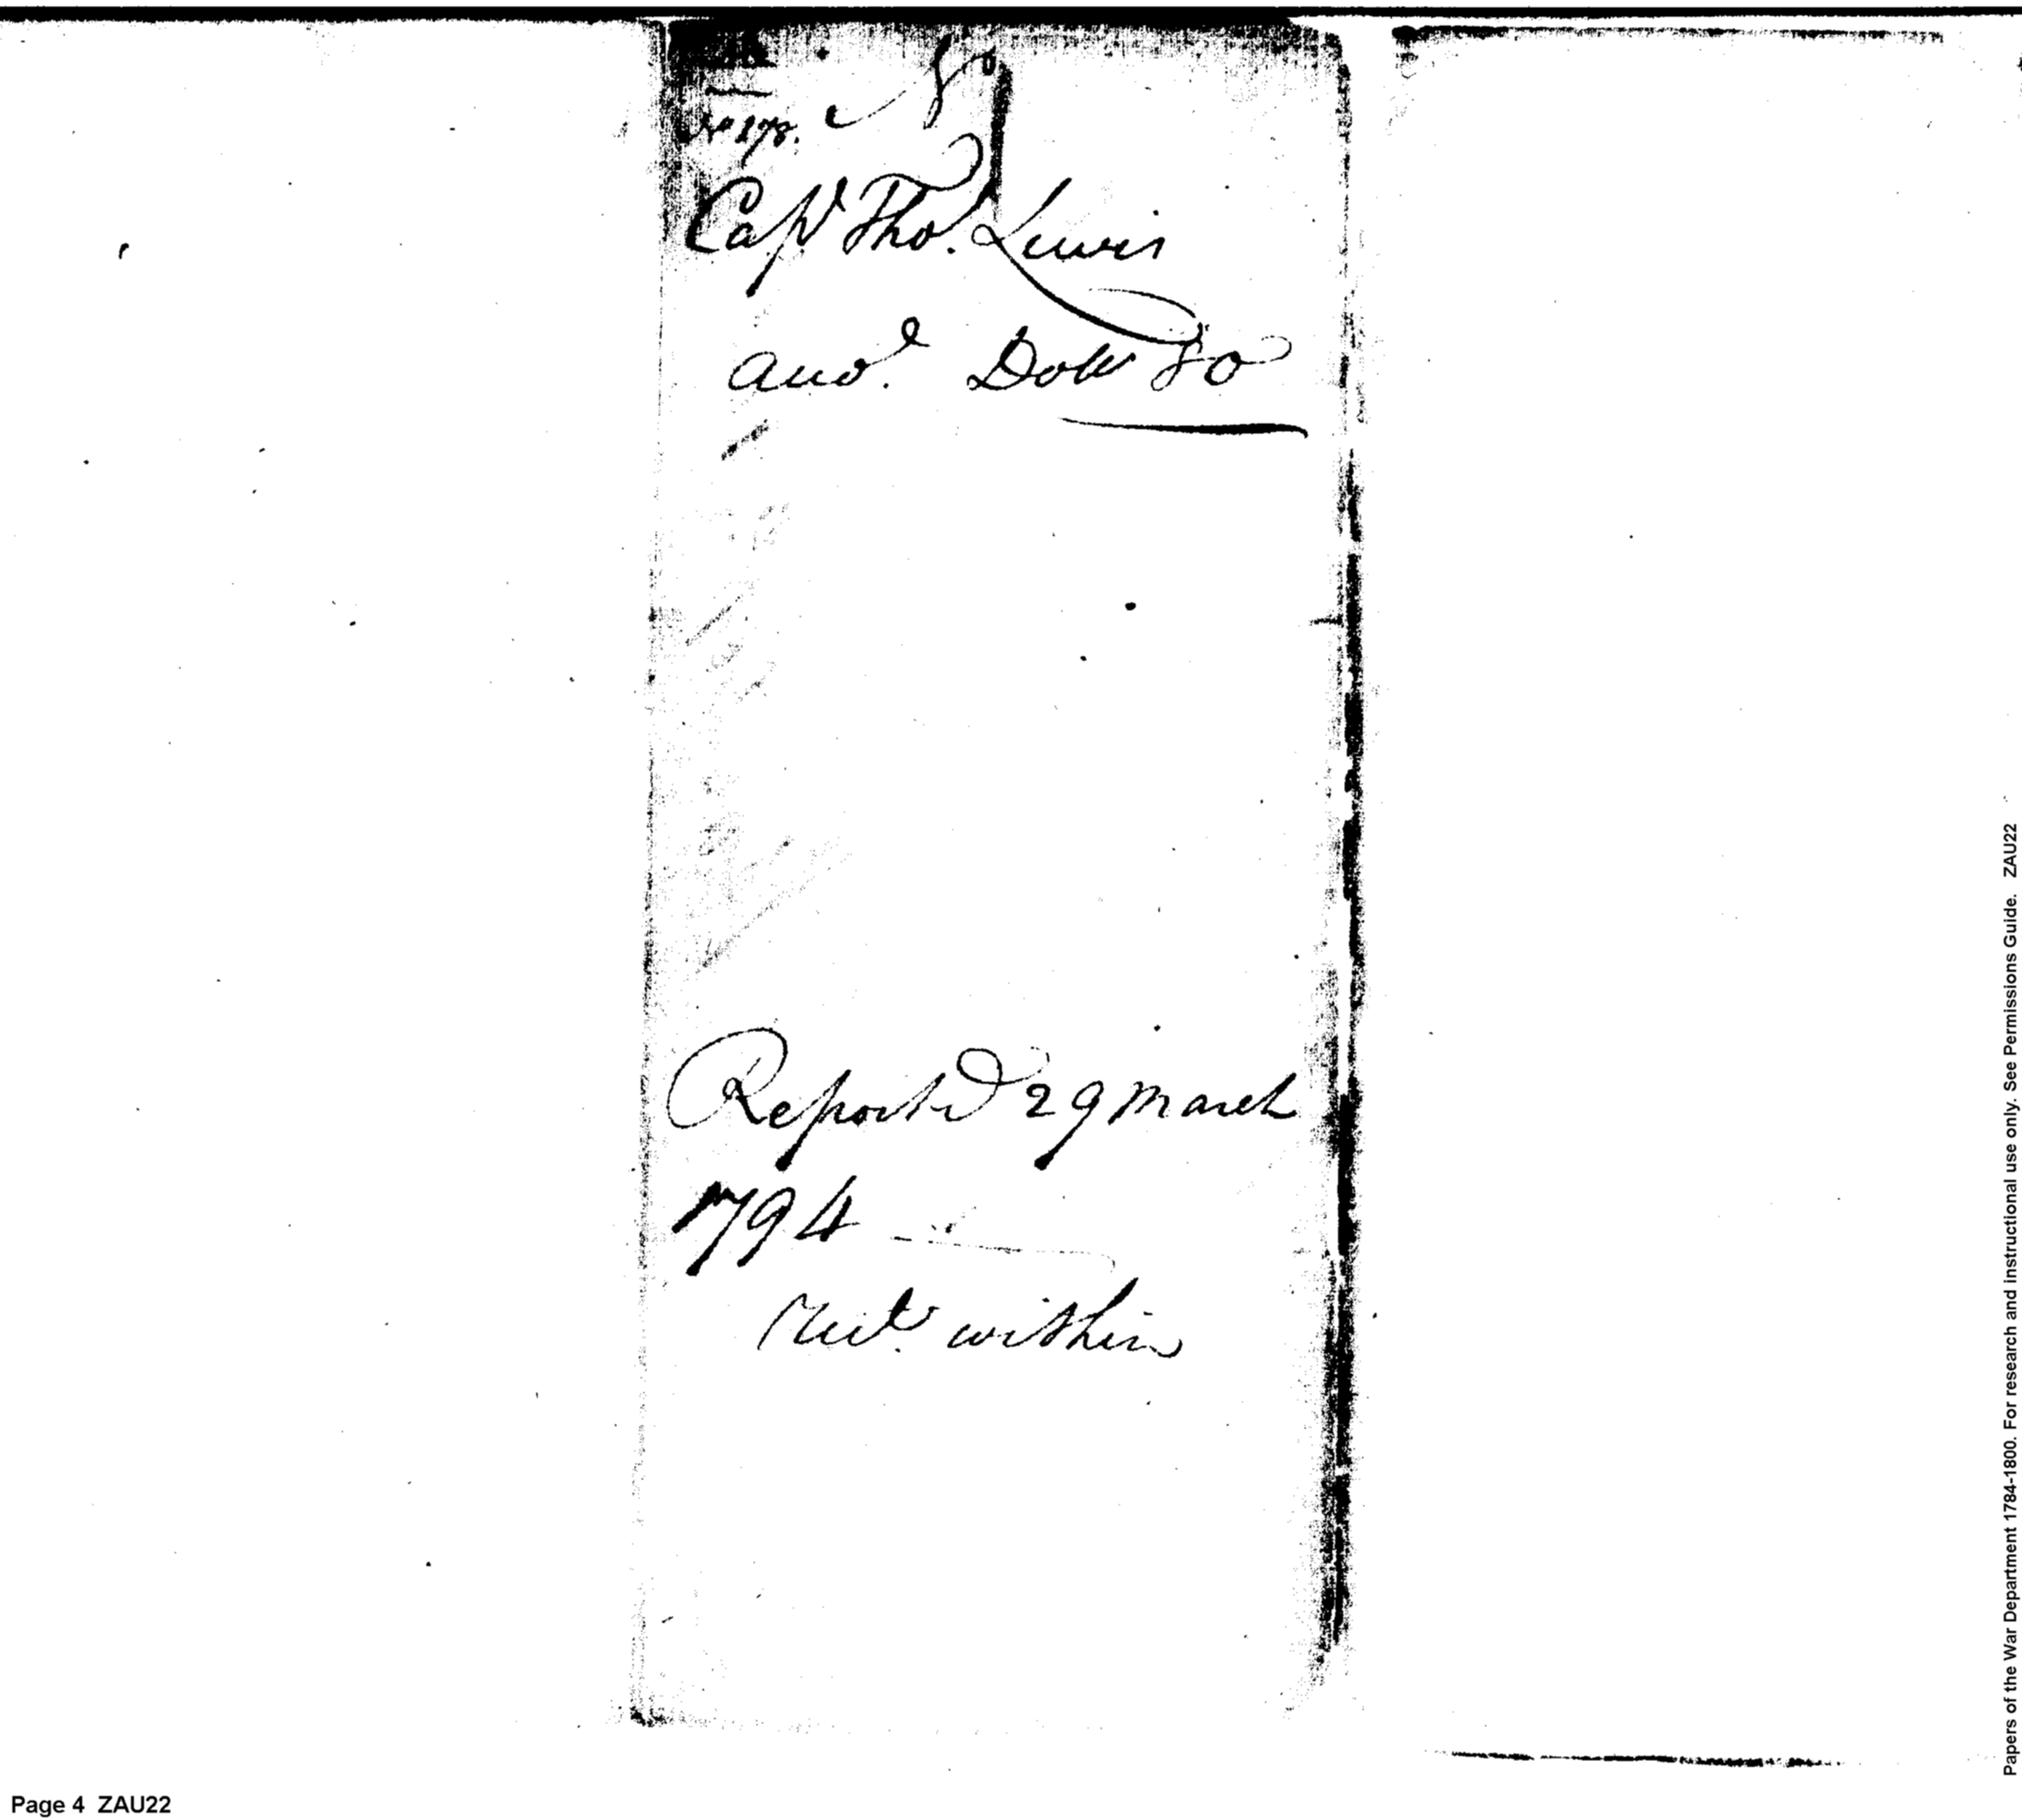 No
No 178.
Capt Tho.s Lewis
amo.t Dolls 80
Reported 29 March
1794
Rect. within
Papers of the War Department 1784-1800. For research and instructional use only. See Permissions Guide. ZAU22
Page 4 ZAU22